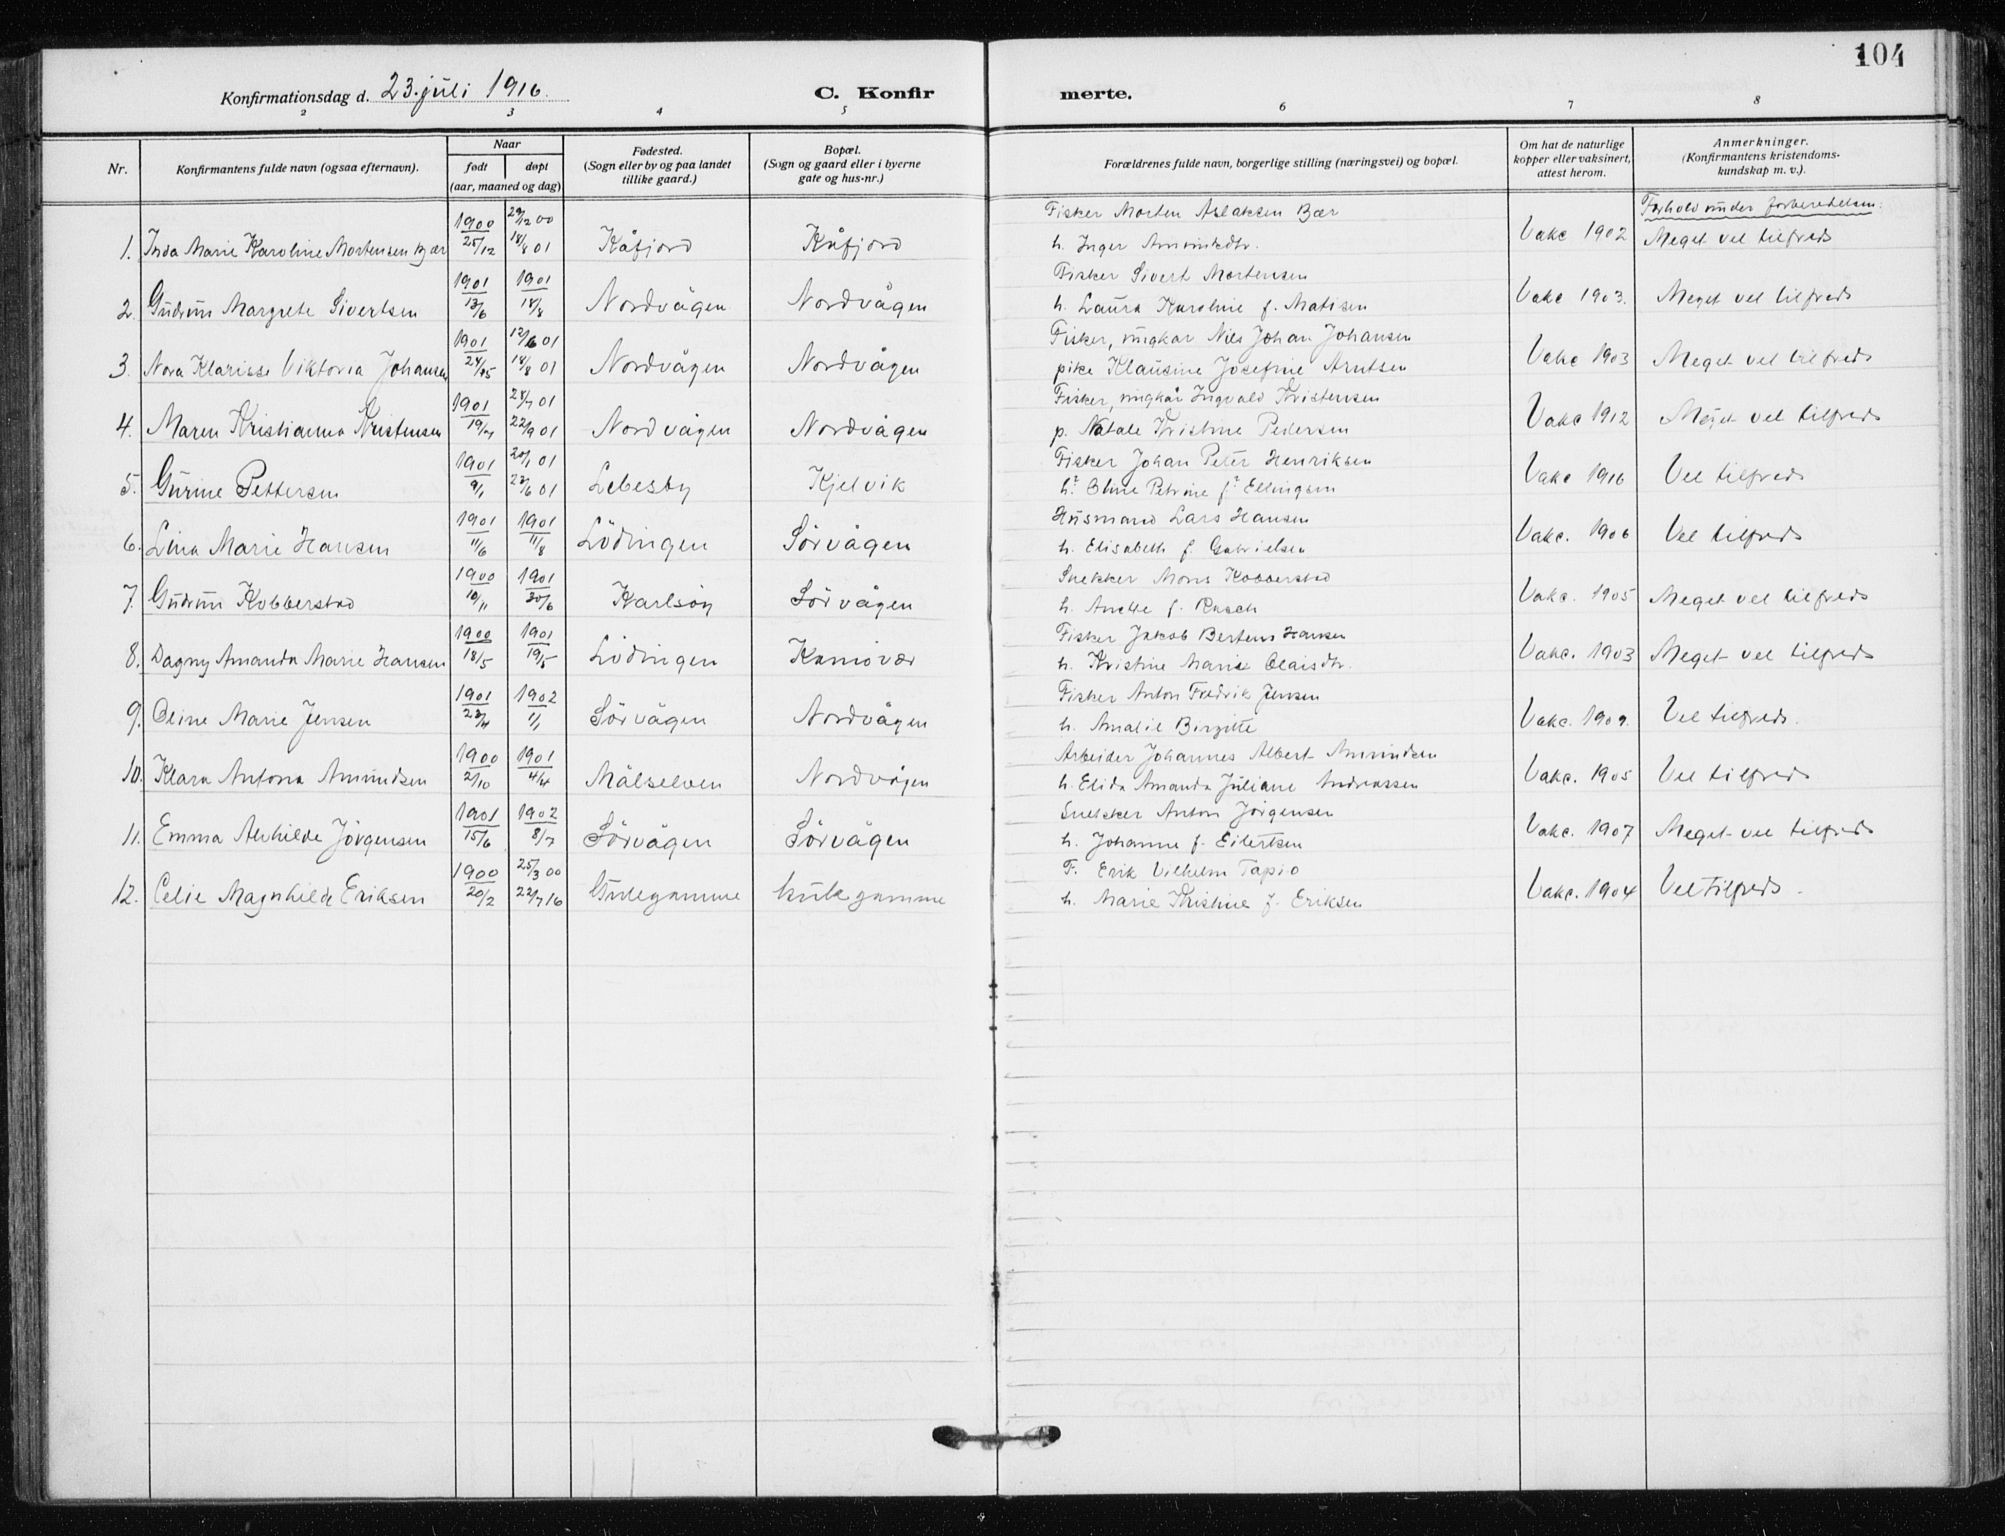 104
Konfirmationsdag d. 23. juli 1916.
C. Konfir merte.
2 3 4 5 6 7 8
Nr. Konfirmantens fulde navn (ogsaa efternavn). Naar født døpt (aar, maaned og dag) Fødested. (Sogn eller by og paa landet tillike gaard.) Bopæl. (Sogn og gaard eller i byerne gate og hus-nr.) Forældrenes fulde navn, borgerlige stilling (næringsvei) og bopæl. Om hat de naturlige kopper eller vaksinert, attest herom. Anmerkninger. (Konfirmantens kristendoms-kundskap m. v.).
Forhold under forberedelsen:
Fisker Morten Aslaksen Bær
1. Inda Marie Karoline Mortensen Bær 1900 25/12 29/12 00 18/8 01 Kåfjord Kåfjord h. Inger Amundsdtr. Vakc 1902 Meget vel tilfreds
Fisker Sivert Mortensen
2. Gudrun Margrete Sivertsen 1901 13/6 1901 18/8 Nordvågen Nordvågen h. Laura Karoline f. Matisen Vakc 1903. Meget vel tilfreds
Fisker, ungkar Nils Johan Johansen
3. Nora Klarisse Viktoria Johansen 1901 24/5 12/6 01 18/8 01 Nordvågen Nordvågen pike Klausine Josefine Arntsen Vakc 1903 Meget vel tilfreds
Fisker, ungkar Ingvald Kristensen
4. Maren Kristianna Kristensen 1901 19/7 28/7 01 22/9 01 Nordvågen Nordvågen p. Natale Kristine Pedersen Vakc 1912 Meget vel tilfreds
Fisker Johan Peter Henriksen
5. Gurine Pettersen 1901 9/1 20/1 01 23/6 01 Lebesby Kjelvik h. Oline Petrine f. Ellingsen Vakc 1916 Vel tilfreds
Husmand Lars Hansen
6. Lina Marie Hansen 1901 11/6 1901 11/8 Lödingen Sörvågen h. Elisabeth f. Gabrielsen Vakc. 1906 Vel tilfreds
Snekker Mons Kobberstad
7. Gudrun Kobberstad 1900 10/11 1901 30/6 Karlsöy Sörvågen h. Anette f. Rasch Vakc. 1905 Meget vel tilfreds
Fisker Jakob Bertens Hansen
8. Dagny Amanda Marie Hansen 1900 18/5 1901 19/5 Lödingen Kamövær h. Kristine Marie Olaisdtr. Vakc. 1903 Meget vel tilfreds
Fisker Anton Fredrik Jensen
9. Oline Marie Jensen 1901 23/4 1902 1/1 Sörvågen Nordvågen h. Amalie Birgitte Vakc. 1909. Vel tilfreds.
Arbeider Johannes Albert Amundsen
10. Klara Antona Amundsen 1900 2/10 1901 4/4 Målselven Nordvågen h. Elida Amanda Juliane Andreassen Vakc. 1905 Vel tilfreds
Snekker Anton Jörgensen
11. Emma Alvhilde Jörgensen 1901 15/6 1902 8/7 Sörvågen Sörvågen h. Johanne f. Eilertsen Vakc. 1907 Meget vel tilfreds
F. Erik Vilhelm Tapio
12. Celie Magnhilde Eriksen 1900 20/2 25/3 00 22/7 16 h. Marie Kristine f. Eriksen Vakc. 1904 Vel tilfreds.